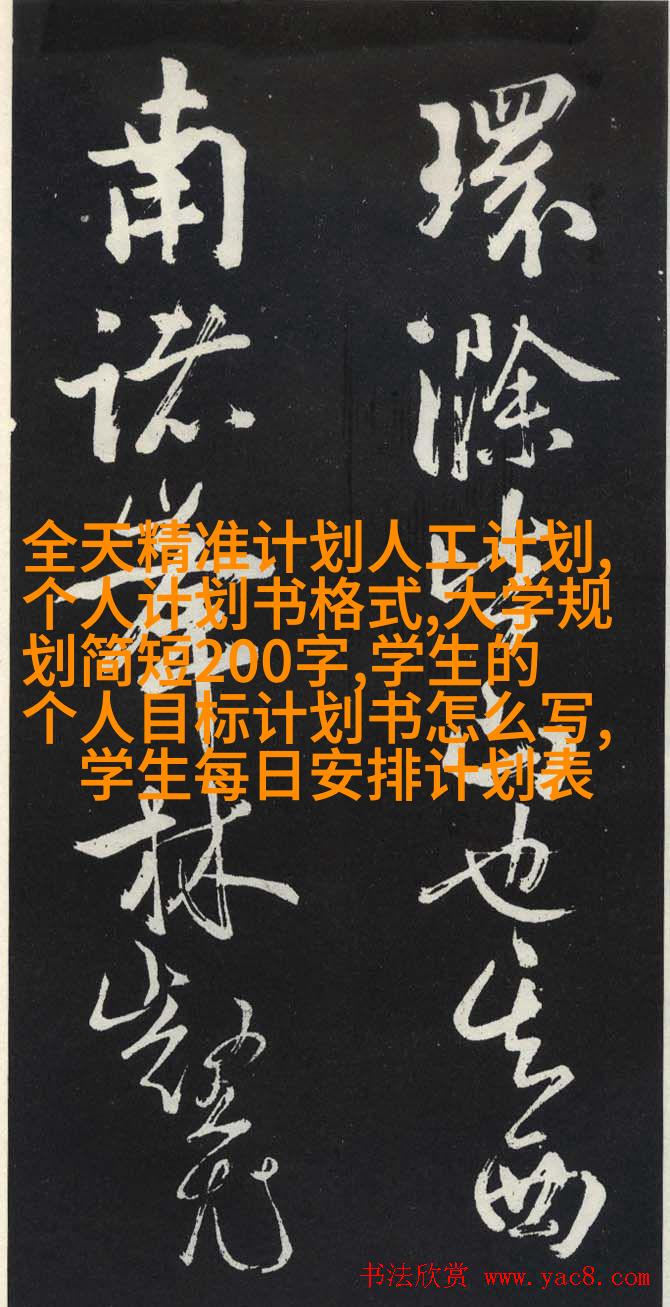 環滁皆山也其西
南諸峯林壑尤
全天精准计划人工计划,
个人计划书格式,大学规
划简短200字,学生的
个人目标计划书怎么写,
学生每日安排计划表
书法欣赏 www.yac8.com